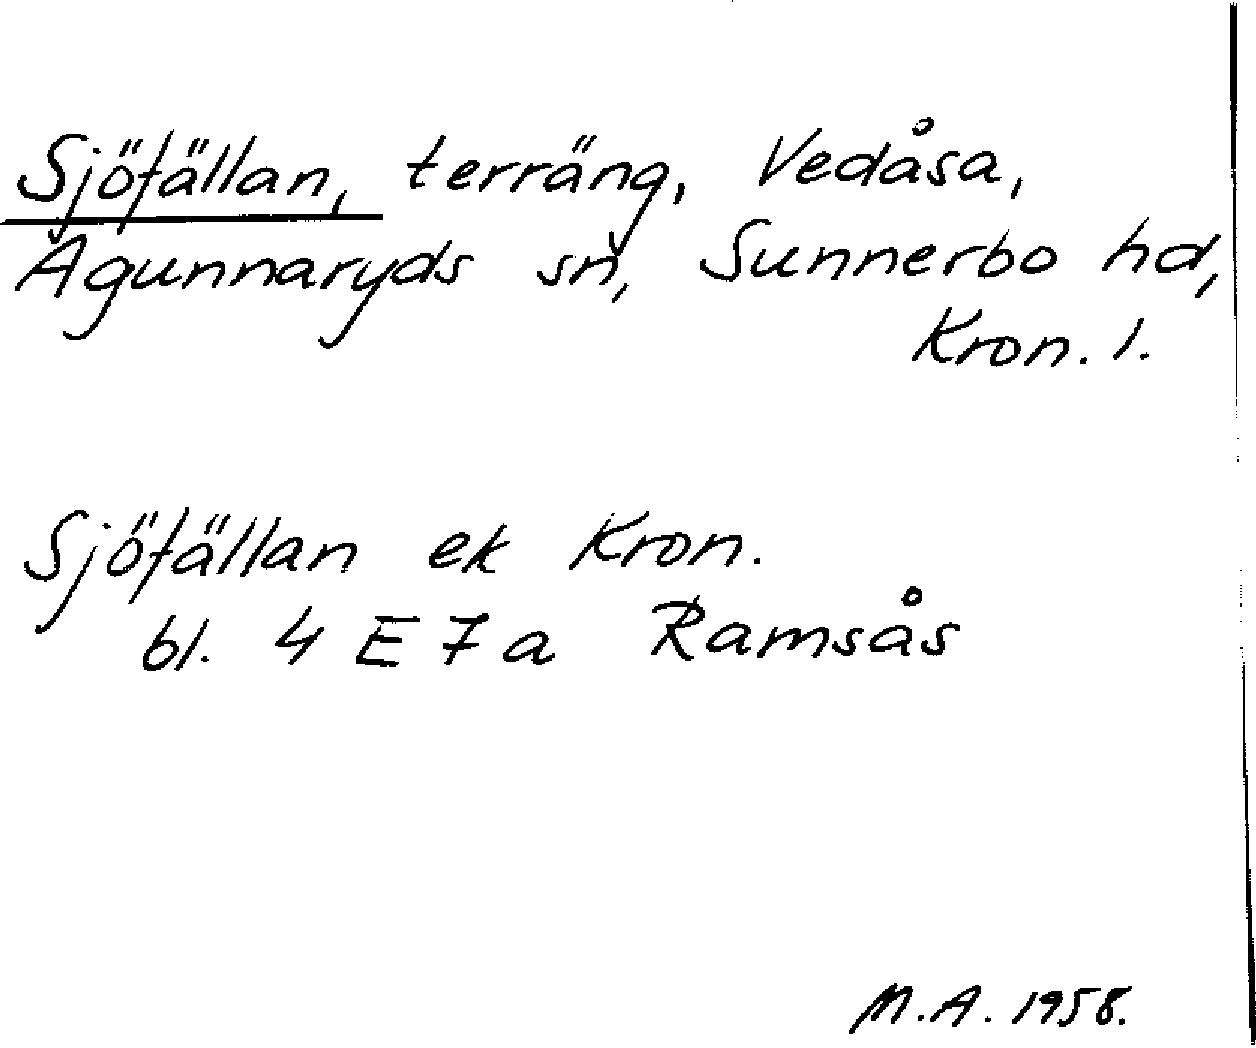 Sjöfällan, terräng, Vedåsa,
Agunnaryds sn, Sunnerbo hd,
Kron. l.
Sjöfällan ek Kron.
bl. 4 E 7 a Ramsås
M.A. 1958.